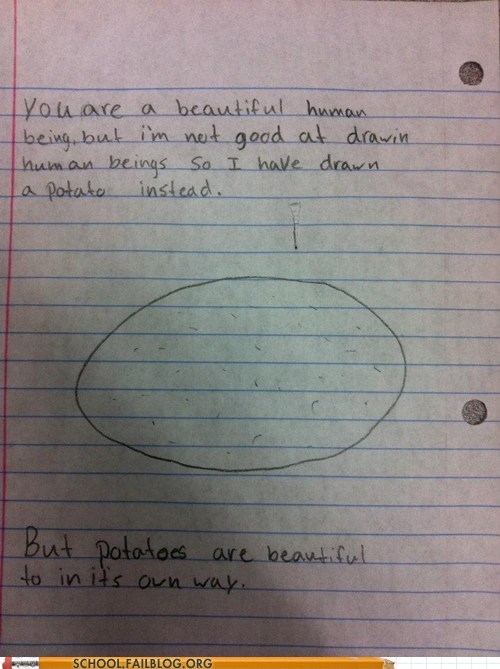 You are a beautiful human
being, but i'm not good at drawin
human beings so I have drawn
a potato instead.
But potatoes are beautiful
to in its own way.
SCHOOL.FAILBLOG.ORG